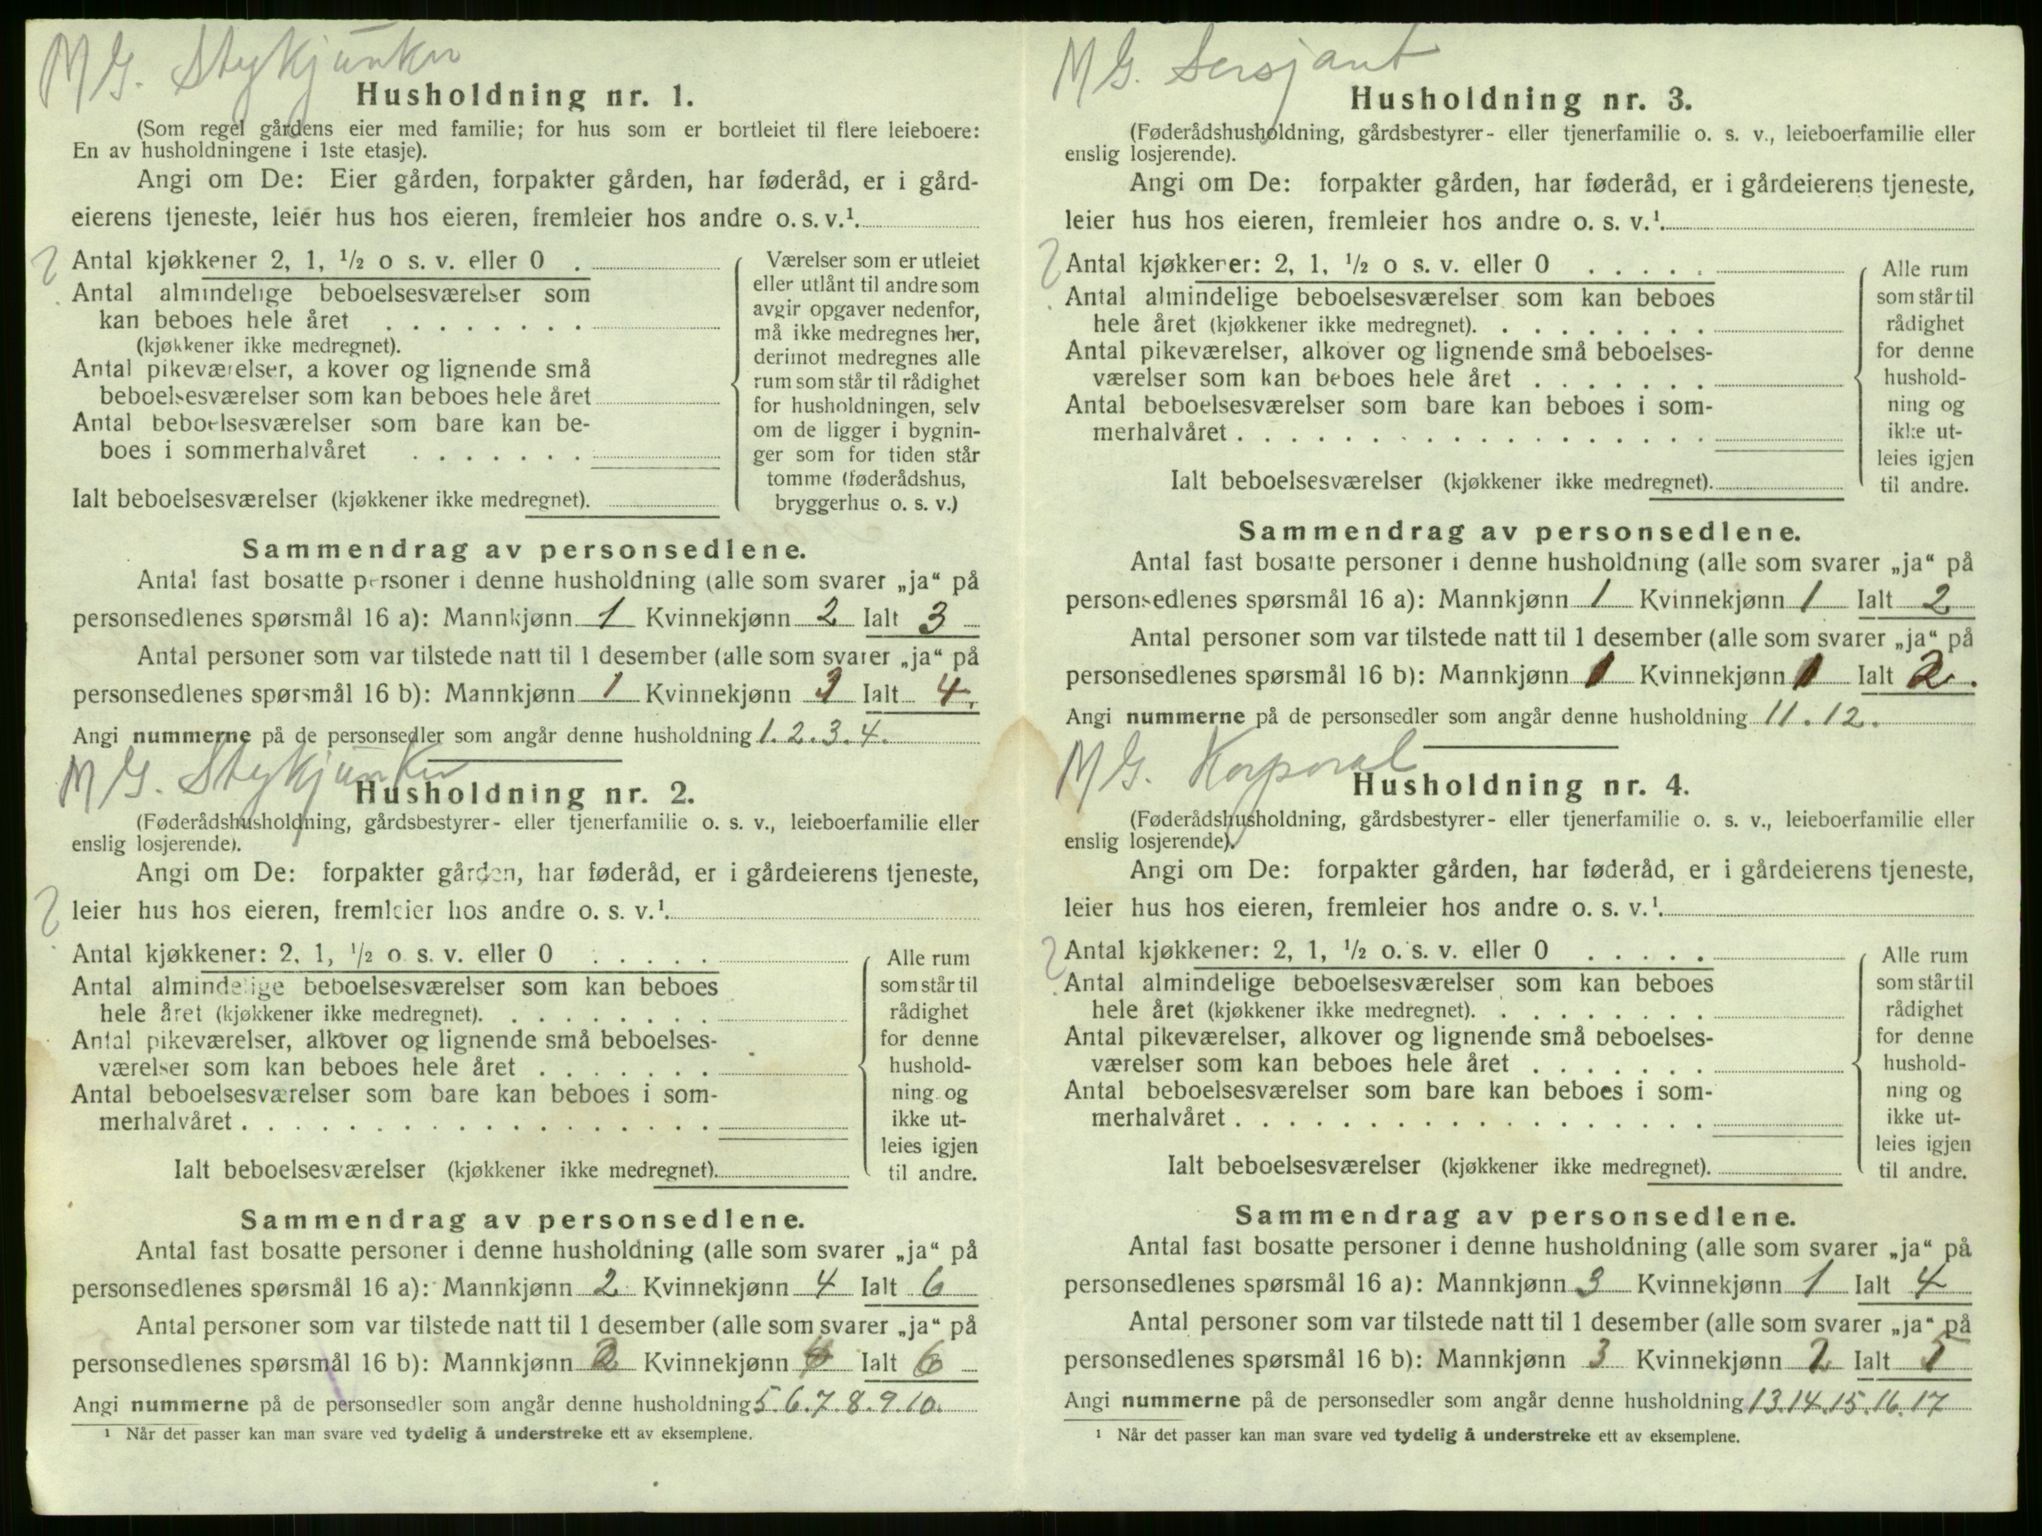 M G. Stykjunker
Husholdning nr. 1.
(Som regel gårdens eier med familie; for hus som er bortleiet til flere leieboere:
En av husholdningene i 1ste etasje).
Angi om De: Eier gården, forpakter gården, har føderåd, er i gård-
eierens tjeneste, leier hus hos eieren, fremleier hos andre o. s. v.¹
? Antal kjøkkener 2, 1, ½ o s. v. eller 0 .
Antal almindelige beboelsesværelser som
kan beboes hele året . . . . . . . .
(kjøkkener ikke medregnet).
Antal pikeværelser, a kover og lignende små
beboelsesværelser som kan beboes hele året
Antal beboelsesværelser som bare kan be-
boes i sommerhalvåret . . . . . . .
Ialt beboelsesværelser (kjøkkener ikke medregnet).
Værelser som er utleiet
eller utlånt til andre som
avgir opgaver nedenfor,
må ikke medregnes her,
derimot medregnes alle
rum som står til rådighet
for husholdningen, selv
om de ligger i bygnin-
ger som for tiden står
tomme (føderådshus,
bryggerhus o. s. v.)
Sammendrag av personsedlene.
Antal fast bosatte personer i denne husholdning (alle som svarer „ja“ på
personsedlenes spørsmål 16 a): Mannkjønn 1 Kvinnekjønn 2 Ialt 3
Antal personer som var tilstede natt til 1 desember (alle som svarer „ja“ på
personsedlenes spørsmål 16 b): Mannkjønn 1 Kvinnekjønn 3 Ialt 4.
Angi nummerne på de personsedler som angår denne husholdning 1. 2. 3. 4.
M G. Stykjunker
Husholdning nr. 2.
(Føderådshusholdning, gårdsbestyrer- eller tjenerfamilie o. s. v., leieboerfamilie eller
enslig losjerende).
Angi om De: forpakter gården, har føderåd, er i gårdeierens tjeneste,
? leier hus hos eieren, fremleier hos andre o. s. v.¹
Antal kjøkkener: 2, 1, ½ o s. v. eller 0 . . . . .
Antal almindelige beboelsesværelser som kan beboes
hele året (kjøkkener ikke medregnet). . . . . . . . .
Antal pikeværelser, alkover og lignende små beboelses-
værelser som kan beboes hele året . . . . . . .
Antal beboelsesværelser som bare kan beboes i som-
merhalvåret . . . . . . . . . . . . . . . . . .
Ialt beboelsesværelser (kjøkkener ikke medregnet).
Alle rum
som står til
rådighet
for denne
hushold-
ning og
ikke ut-
leies igjen
til andre.
Sammendrag av personsedlene.
Antal fast bosatte personer i denne husholdning (alle som svarer „ja“ på
personsedlenes spørsmål 16 a): Mannkjønn 2 Kvinnekjønn 4 Ialt 6
Antal personer som var tilstede natt til 1 desember (alle som svarer „ja“ på
personsedlenes spørsmål 16 b): Mannkjønn 2 Kvinnekjønn 4 Ialt 6
Angi nummerne på de personsedler som angår denne husholdning 5. 6. 7. 8. 9. 10.
¹ Når det passer kan man svare ved tydelig å understreke ett av eksemplene.
M G. Sersjant
Husholdning nr. 3.
(Føderådshusholdning, gårdsbestyrer- eller tjenerfamilie o. s. v., leieboerfamilie eller
enslig losjerende).
Angi om De: forpakter gården, har føderåd, er i gårdeierens tjeneste,
leier hus hos eieren, fremleier hos andre o. s. v.¹
? Antal kjøkkener: 2, 1, ½ o s. v. eller 0 . . . . .
Antal almindelige beboelsesværelser som kan beboes
hele året (kjøkkener ikke medregnet). . . . . . . . .
Antal pikeværelser, alkover og lignende små beboelses-
værelser som kan beboes hele året . . . . . . .
Antal beboelsesværelser som bare kan beboes i som-
merhalvåret . . . . . . . . . . . . . . . . . .
Ialt beboelsesværelser (kjøkkener ikke medregnet).
Alle rum
som står til
rådighet
for denne
hushold-
ning og
ikke ut-
leies igjen
til andre.
Sammendrag av personsedlene.
Antal fast bosatte personer i denne husholdning (alle som svarer „ja“ på
personsedlenes spørsmål 16 a): Mannkjønn 1 Kvinnekjønn 1 Ialt 2
Antal personer som var tilstede natt til 1 desember (alle som svarer „ja“ på
personsedlenes spørsmål 16 b): Mannkjønn 1 Kvinnekjønn 1 Ialt 2.
Angi nummerne på de personsedler som angår denne husholdning 11. 12.
M G. Korporal
Husholdning nr. 4.
(Føderådshusholdning, gårdsbestyrer- eller tjenerfamilie o. s. v., leieboerfamilie eller
enslig losjerende).
Angi om De: forpakter gården, har føderåd, er i gårdeierens tjeneste,
leier hus hos eieren, fremleier hos andre o. s. v.¹
? Antal kjøkkener: 2, 1, ½ o. s. v. eller 0 . . . . .
Antal almindelige beboelsesværelser som kan beboes
hele året (kjøkkener ikke medregnet). . . . . . . . .
Antal pikeværelser, alkover og lignende små beboelses-
værelser som kan beboes hele året . . . . . . .
Antal beboelsesværelser som bare kan beboes i som-
merhalvåret . . . . . . . . . . . . . . . . . .
Ialt beboelsesværelser (kjøkkener ikke medregnet).
Alle rum
som står til
rådighet
for denne
hushold-
ning og
ikke ut-
leies igjen
til andre.
Sammendrag av personsedlene.
Antal fast bosatte personer i denne husholdning (alle som svarer „ja“ på
personsedlenes spørsmål 16 a): Mannkjønn 3 Kvinnekjønn 1 Ialt 4
Antal personer som var tilstede natt til 1 desember (alle som svarer „ja“ på
personsedlenes spørsmål 16 b): Mannkjønn 3 Kvinnekjønn 2 Ialt 5
Angi nummerne på de personsedler som angår denne husholdning 13. 14. 15. 16. 17
¹ Når det passer kan man svare ved tydelig å understreke ett av eksemplene.